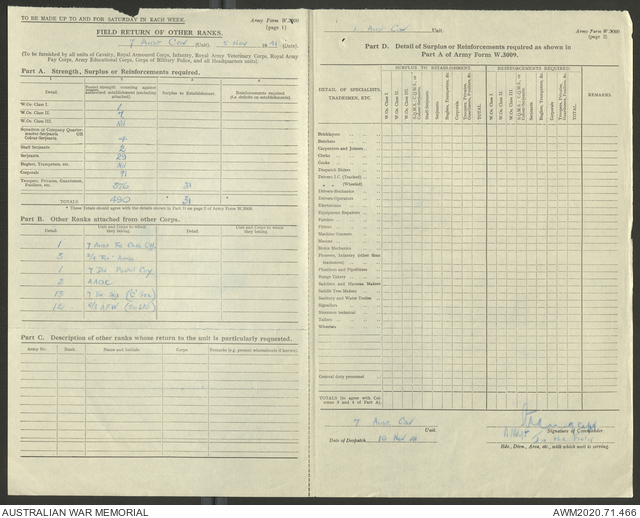 TO BE MADE UP TO AND FOR SATURDAY IN EACH WEEK.
Army Form W.3009
(page 1)
FIELD RETURN OF OTHER RANKS.
7 Aust Cav (Unit) 5 Nov 1941 (Date).
(To be furnished by all units of Cavalry, Royal Armoured Corps, Infantry, Royal Army Veterinary Corps, Royal Army
Pay Corps, Army Educational Corps, Corps of Military Police, and all Headquarters units).
Part A. Strength, Surplus or Reinforcements required.
Detail.
Surplus to Establishment.
Reinforcements required
W.Os. Class I. 1
W.Os. Class II. 7
W.Os. Class III. Nil
Squadron or Company Quarter-
master-Serjeants OR
Colour-Serjeants 4
Staff Serjeants 2
Serjeants 29
Buglers, Trumpeters, etc. Nil
Corporals 71
Troopers, Privates, Guardsmen,
Fusiliers, etc. 376 31
TOTALS 490 * 31 *
* These totals should agree with the details shown in Part D on page 2 of Army Form W.3009.
Part B. Other Ranks attached from other Corps.
Detail. Unit and Corps to which they belong. Detail. Unit and Corps to which they belong.
1
3
1
2 AAOC
13 7 Div Sigs
12
Part C. Description of other ranks whose return to the unit is particularly requested.
Army No. Rank. Name and Initials Corps Remarks (e.g. present whereabouts if known).
Aust Cav Unit.
Army Form W.3009
(page 2)
Part D. Detail of Surplus or Reinforcements required as shown in
Part A of Army Form W.3009.
SURPLUS TO ESTABLISHMENT. REINFORCEMENTS REQUIRED.
DETAIL OF SPECIALISTS,
TRADESMEN, ETC.
W.Os. Class I. W.Os. Class II. W.Os. Class III. Staff-Serjeants Serjeants Buglers, Trumpeters, &c. Corporals TOTAL.
REMARKS.
Bricklayers
Butchers
Carpenters and Joiners
Clerks
Cooks
Dispatch Riders
Drivers I.C. (Tracked)
" " (Wheeled)
Drivers-Mechanics
Drivers-Operators
Electricians
Equipment Repairers
Farriers
Fitters
Machine Gunners
Masons
Motor Mechanics
Pioneers, Infantry (other than
tradesmen)
Plumbers and Pipefitters
Range Takers
Saddlers and Harness Makers
Saddle Tree Makers
Sanitary and Water Duties
Signallers
Storemen technical
Tailors
Wheelers
General duty personnel
TOTALS (to agree with Col-
umns 3 and 4 of Part A).
7 Aust Cav
Unit.
Date of Despatch 10 Nov 41
Signature of Commander
In the Field
Bde., Divn., Area, etc., with which unit is serving.
AUSTRALIAN WAR MEMORIAL
AWM2020.71.466